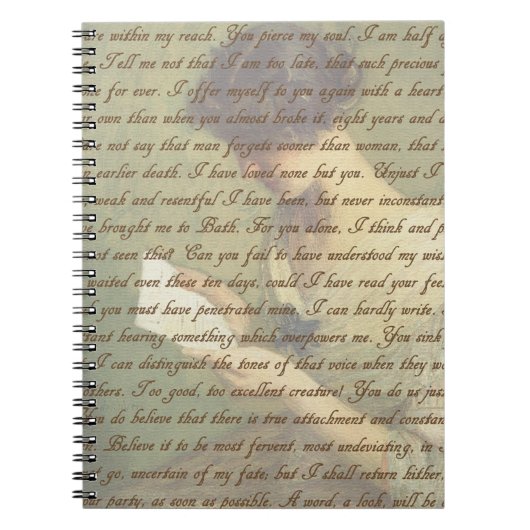 are within my reach. You pierce my soul. I am half a
e. Tell me not that I am too late, that such precious
ne for ever. I offer myself to you again with a heart
ur own than when you almost broke it, eight years and a
are not say that man forgets sooner than woman, that
n earlier death. I have loved none but you. Unjust I
, weak and resentful I have been, but never inconstant
ve brought me to Bath. For you alone, I think and p
not seen this? Can you fail to have understood my wis
waited even these ten days, could I have read your fee
k you must have penetrated mine. I can hardly write.
tant hearing something which overpowers me. You sink
I can distinguish the tones of that voice when they wo
others. Too good, too excellent creature! You do us jus
You do believe that there is true attachment and constan
n. Believe it to be most fervent, most undeviating, in
st go, uncertain of my fate; but I shall return hither,
our party, as soon as possible. A word, a look, will be